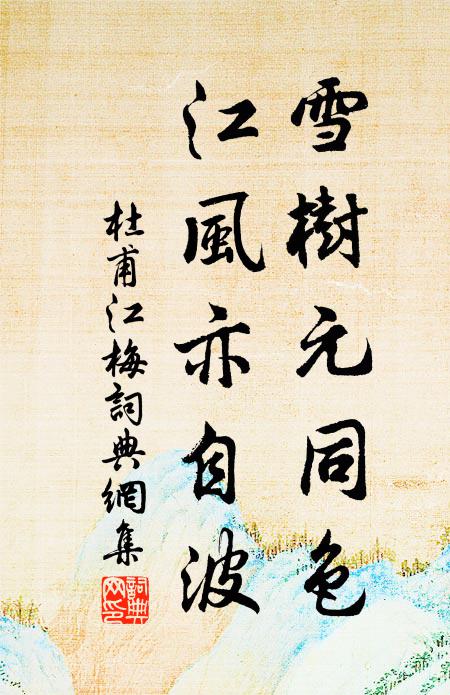 雪樹元同色
江風亦自波
杜甫江梅詞典網集
詞典網印